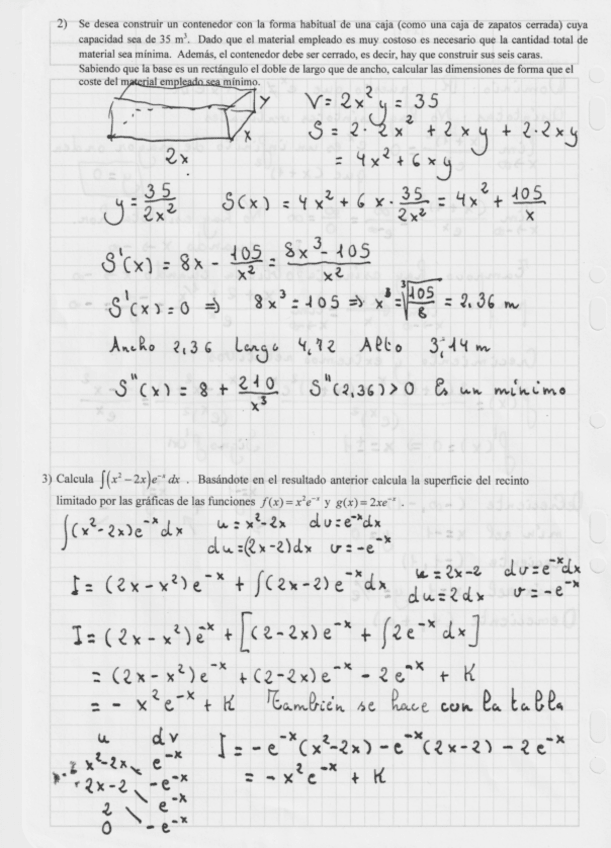 2) Se desea construir un contenedor con la forma habitual de una caja (como una caja de zapatos cerrada) cuya
capacidad sea de 35 m³. Dado que el material empleado es muy costoso es necesario que la cantidad total de
material sea mínima. Además, el contenedor debe ser cerrado, es decir, hay que construir sus seis caras.
Sabiendo que la base es un rectángulo el doble de largo que de ancho, calcular las dimensiones de forma que el
coste del material empleado sea mínimo.
y
x
2x
V = 2x² y = 35
S = 2·2x² + 2xy + 2·2xy
= 4x² + 6xy
y = 35/2x² S(x) = 4x² + 6x · 35/2x² = 4x² + 105/x
S'(x) = 8x - 105/x² = 8x³ - 105/x²
S'(x) = 0 ⇒ 8x³ = 105 ⇒ x³ = ∛105/8 = 2,36 m
Ancho 2,36 Largo 4,72 Alto 3,14 m
S''(x) = 8 + 210/x³ S''(2,36) > 0 Es un mínimo
3) Calcula ∫(x² − 2x)e⁻ˣ dx . Basándote en el resultado anterior calcula la superficie del recinto
limitado por las gráficas de las funciones f(x) = x²e⁻ˣ y g(x) = 2xe⁻ˣ .
∫(x²-2x)e⁻ˣdx u = x²-2x dv = e⁻ˣdx
du = (2x-2)dx v = -e⁻ˣ
I = (2x-x²)e⁻ˣ + ∫(2x-2)e⁻ˣdx u = 2x-2 dv = e⁻ˣdx
du = 2dx v = -e⁻ˣ
I = (2x-x²)e⁻ˣ + [(2-2x)e⁻ˣ + ∫2e⁻ˣdx]
= (2x-x²)e⁻ˣ + (2-2x)e⁻ˣ - 2e⁻ˣ + K
= - x²e⁻ˣ + K También se hace con la tabla
u dv I = -e⁻ˣ(x²-2x) - e⁻ˣ(2x-2) - 2e⁻ˣ
x²-2x e⁻ˣ = -x²e⁻ˣ + K
2x-2 -e⁻ˣ
2 e⁻ˣ
0 -e⁻ˣ